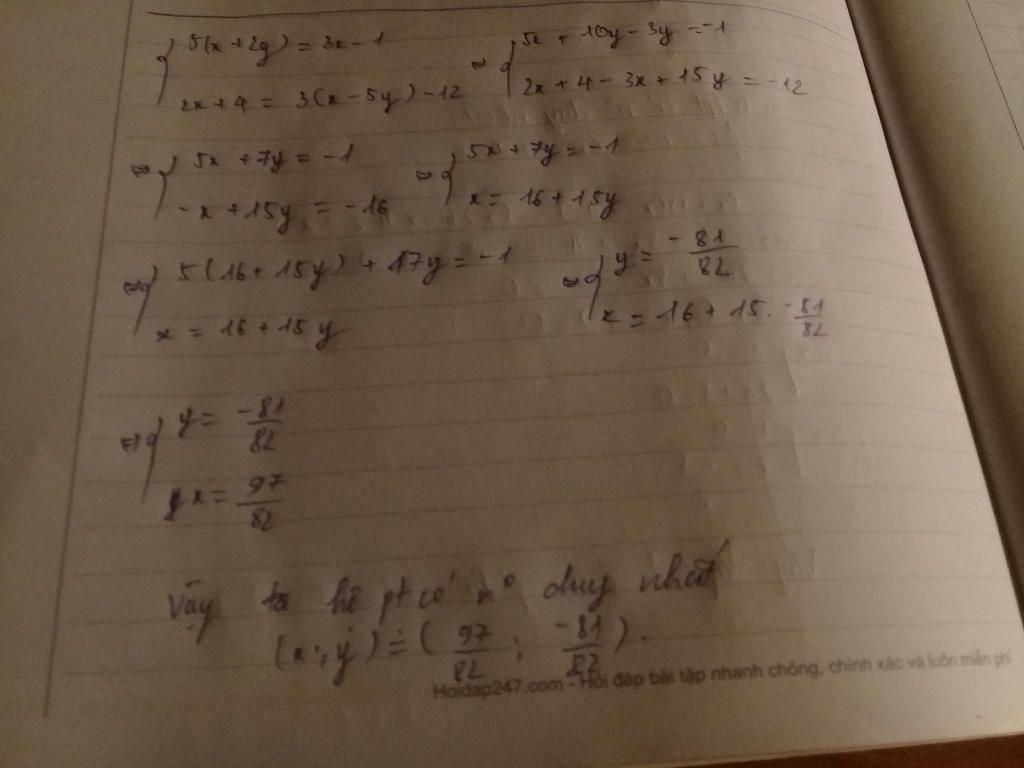 5(x+2y) = 3x-1 ⇔ 5x + 10y - 3y = -1
2x+4 = 3(x-5y)-12 2x+4-3x+15y = -12
⇔ 5x +7y = -1 ⇔ 5x+7y = -1
-x+15y = -16 x = 16+15y
⇔ 5(16+15y) + 7y = -1 ⇔ y = -81/82
x = 16+15y x = 16+15. -81/82
⇔ y = -81/82
x = 97/82
Vậy ta hệ pt có n° duy nhất
(x;y) = (97/82; -81/82).
Hoidap247.com - Hỏi đáp bài tập nhanh chóng, chính xác và luôn miễn phí